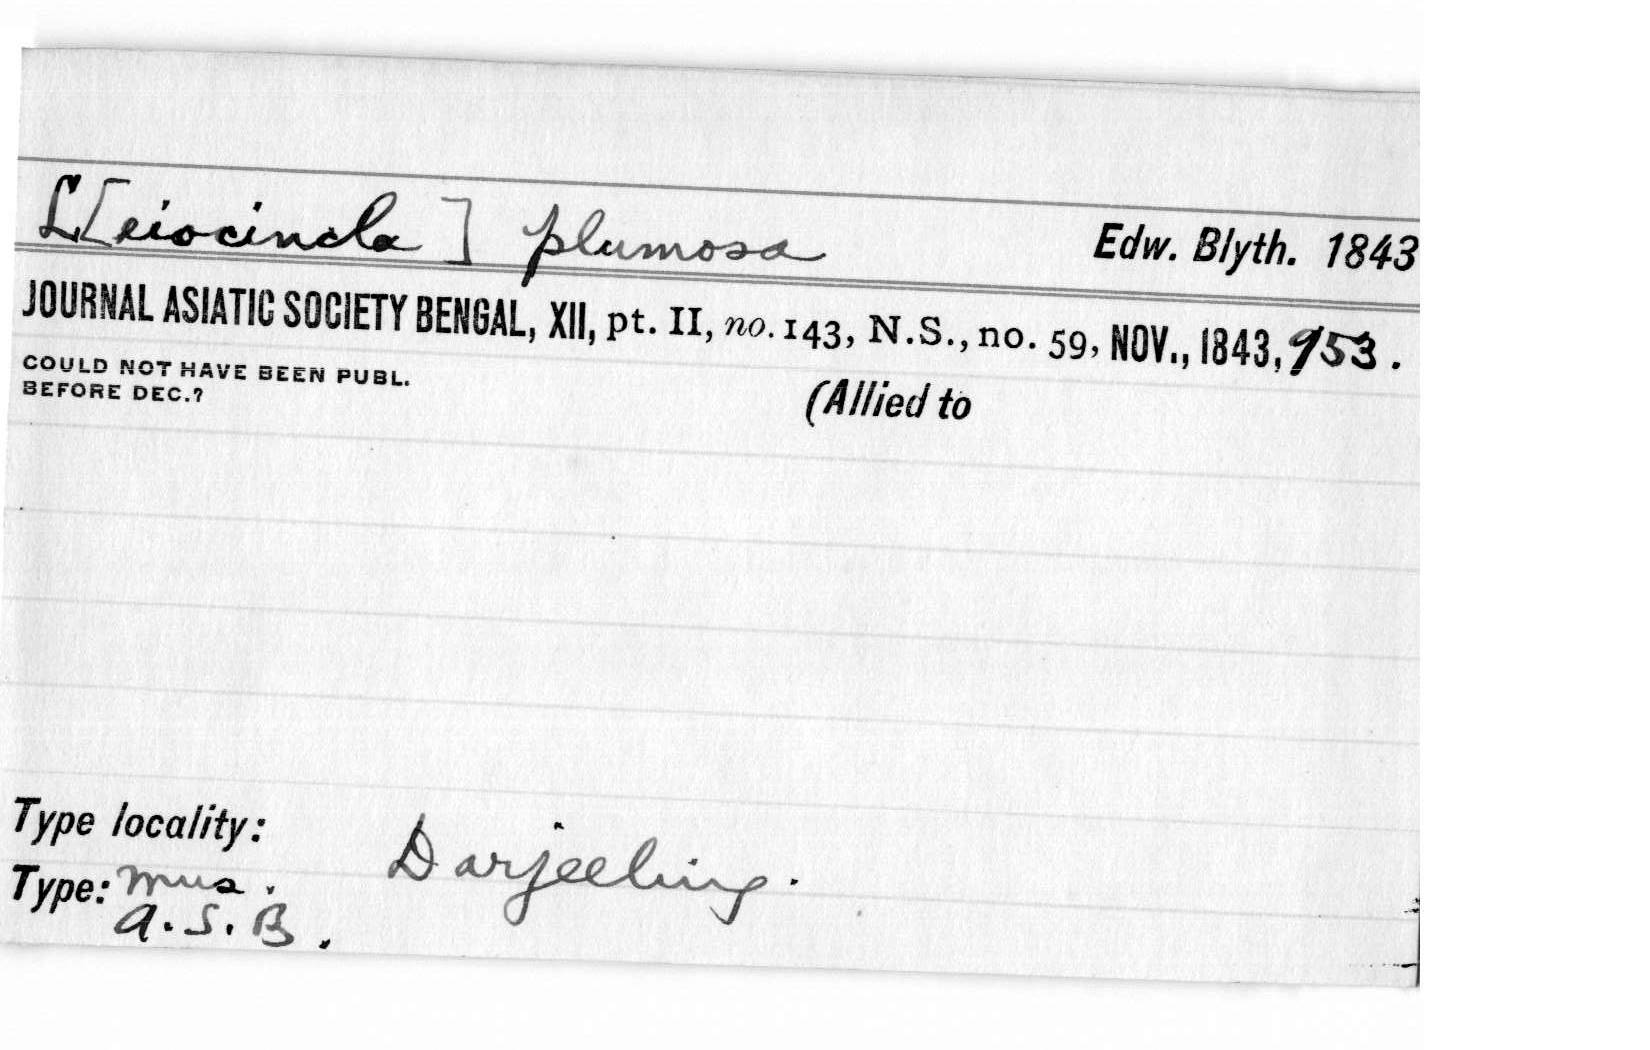 L[eiocincla] plumosa Edw. Blyth. 1843
JOURNAL ASIATIC SOCIETY BENGAL, XII, pt. II, no. 143, N.S., no. 59, NOV., 1843, 953.
COULD NOT HAVE BEEN PUBL.
BEFORE DEC.?
(Allied to
Type locality: Darjeeling.
Type: Mus.
A.S.B.